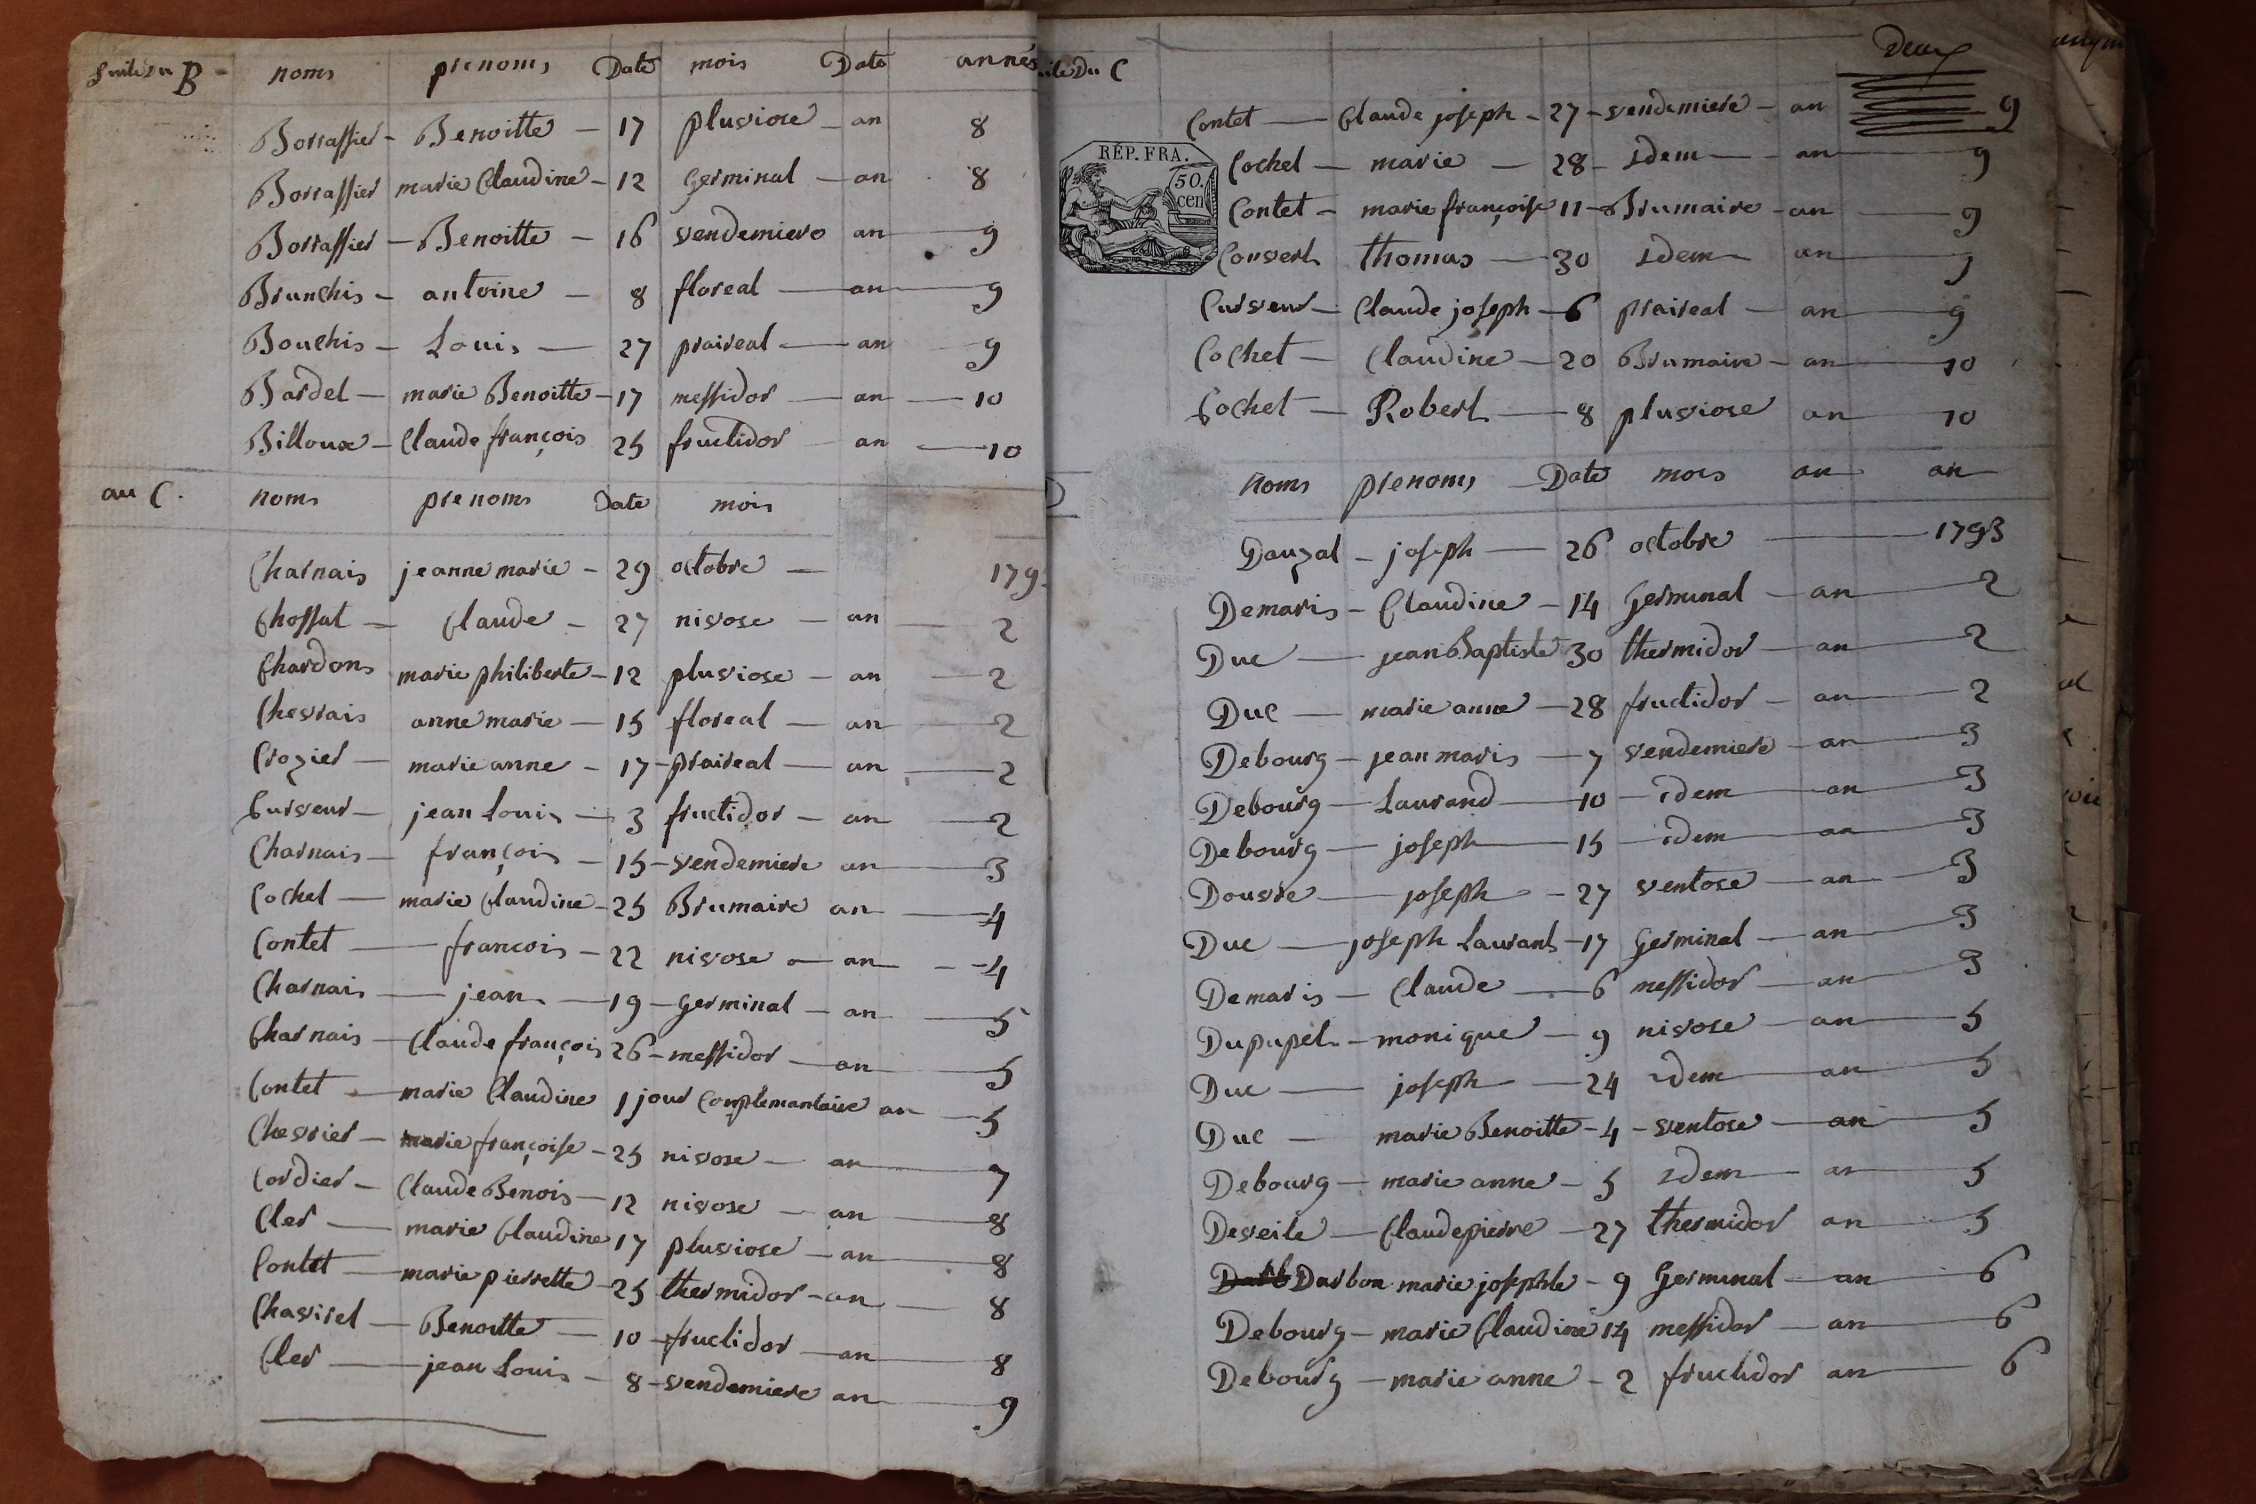 Suite du B noms prenoms Date mois Date années
Borraffier Benoitte 17 pluviose an 8
Borraffier marie Claudine 12 Germinal an 8
Borraffier Benoitte 16 vendemiere an 9
Brunchis antoine 8 floreal an 9
Bouchis Louis 27 praireal an 9
Bardel marie Benoitte 17 messidor an 10
Billoux Claude françois 25 fructidor an 10
au C. noms prenoms Date mois
Charnais jeanne marie 29 octobre 179
Chossat Claude 27 nivose an 2
Chardons marie philiberte 12 pluviose an 2
Chevrais anne marie 15 floreal an 2
Crozier marie anne 17 praireal an 2
Curveur jean Louis 3 fructidor an 2
Charnais françois 15 vendemiere an 3
Cochet marie Claudine 25 Brumaire an 4
Contet francois 22 nivose an 4
Charnais jean 19 Germinal an 5
Charnais Claude françois 26 messidor an 5
Contet marie Claudine 1 jour Complemantaire an 5
Chevrier marie françoise 25 nivose an 7
Cordier Claude Benois 12 nivose an 8
Cler marie Claudine 17 pluviose an 8
Contet marie pierrette 25 thermidor an 8
Chavirel Benoitte 10 fructidor an 8
Cler jean Louis 8 vendemiere an 9
Deux
ite Du C
Contet Claude joseph 27 vendemiere an 9
RÉP. FRA.
50. cen
Cochet marie 28 idem an 9
Contet marie françoise 11 Brumaire an 9
Convert thomas 30 idem an 9
Curveur Claude joseph 6 praireal an 9
Cochet Claudine 20 Brumaire an 10
Cochet Robert 8 pluviose an 10
D noms prenoms Date mois an an
Dauzal joseph 26 octobre 1793
Demaris Claudine 14 Germinal an 2
Duc jean Baptiste 30 thermidor an 2
Duc marie anne 28 fructidor an 2
Debourg jean maris 7 vendemiere an 3
Debourg Laurand 10 idem an 3
Debourg joseph 15 idem an 3
Douvre joseph 27 ventose an 3
Duc joseph Laurant 17 Germinal an 3
Demaris Claude 6 messidor an 3
Dupupet monique 9 nivose an 5
Duc joseph 24 idem an 5
Duc marie Benoitte 4 ventose an 5
Debourg marie anne 5 idem an 5
Deveile Claude pierre 27 thermidor an 5
Darbon marie josephte 9 Germinal an 6
Debourg marie Claudine 14 messidor an 6
Debourg marie anne 2 fructidor an 6